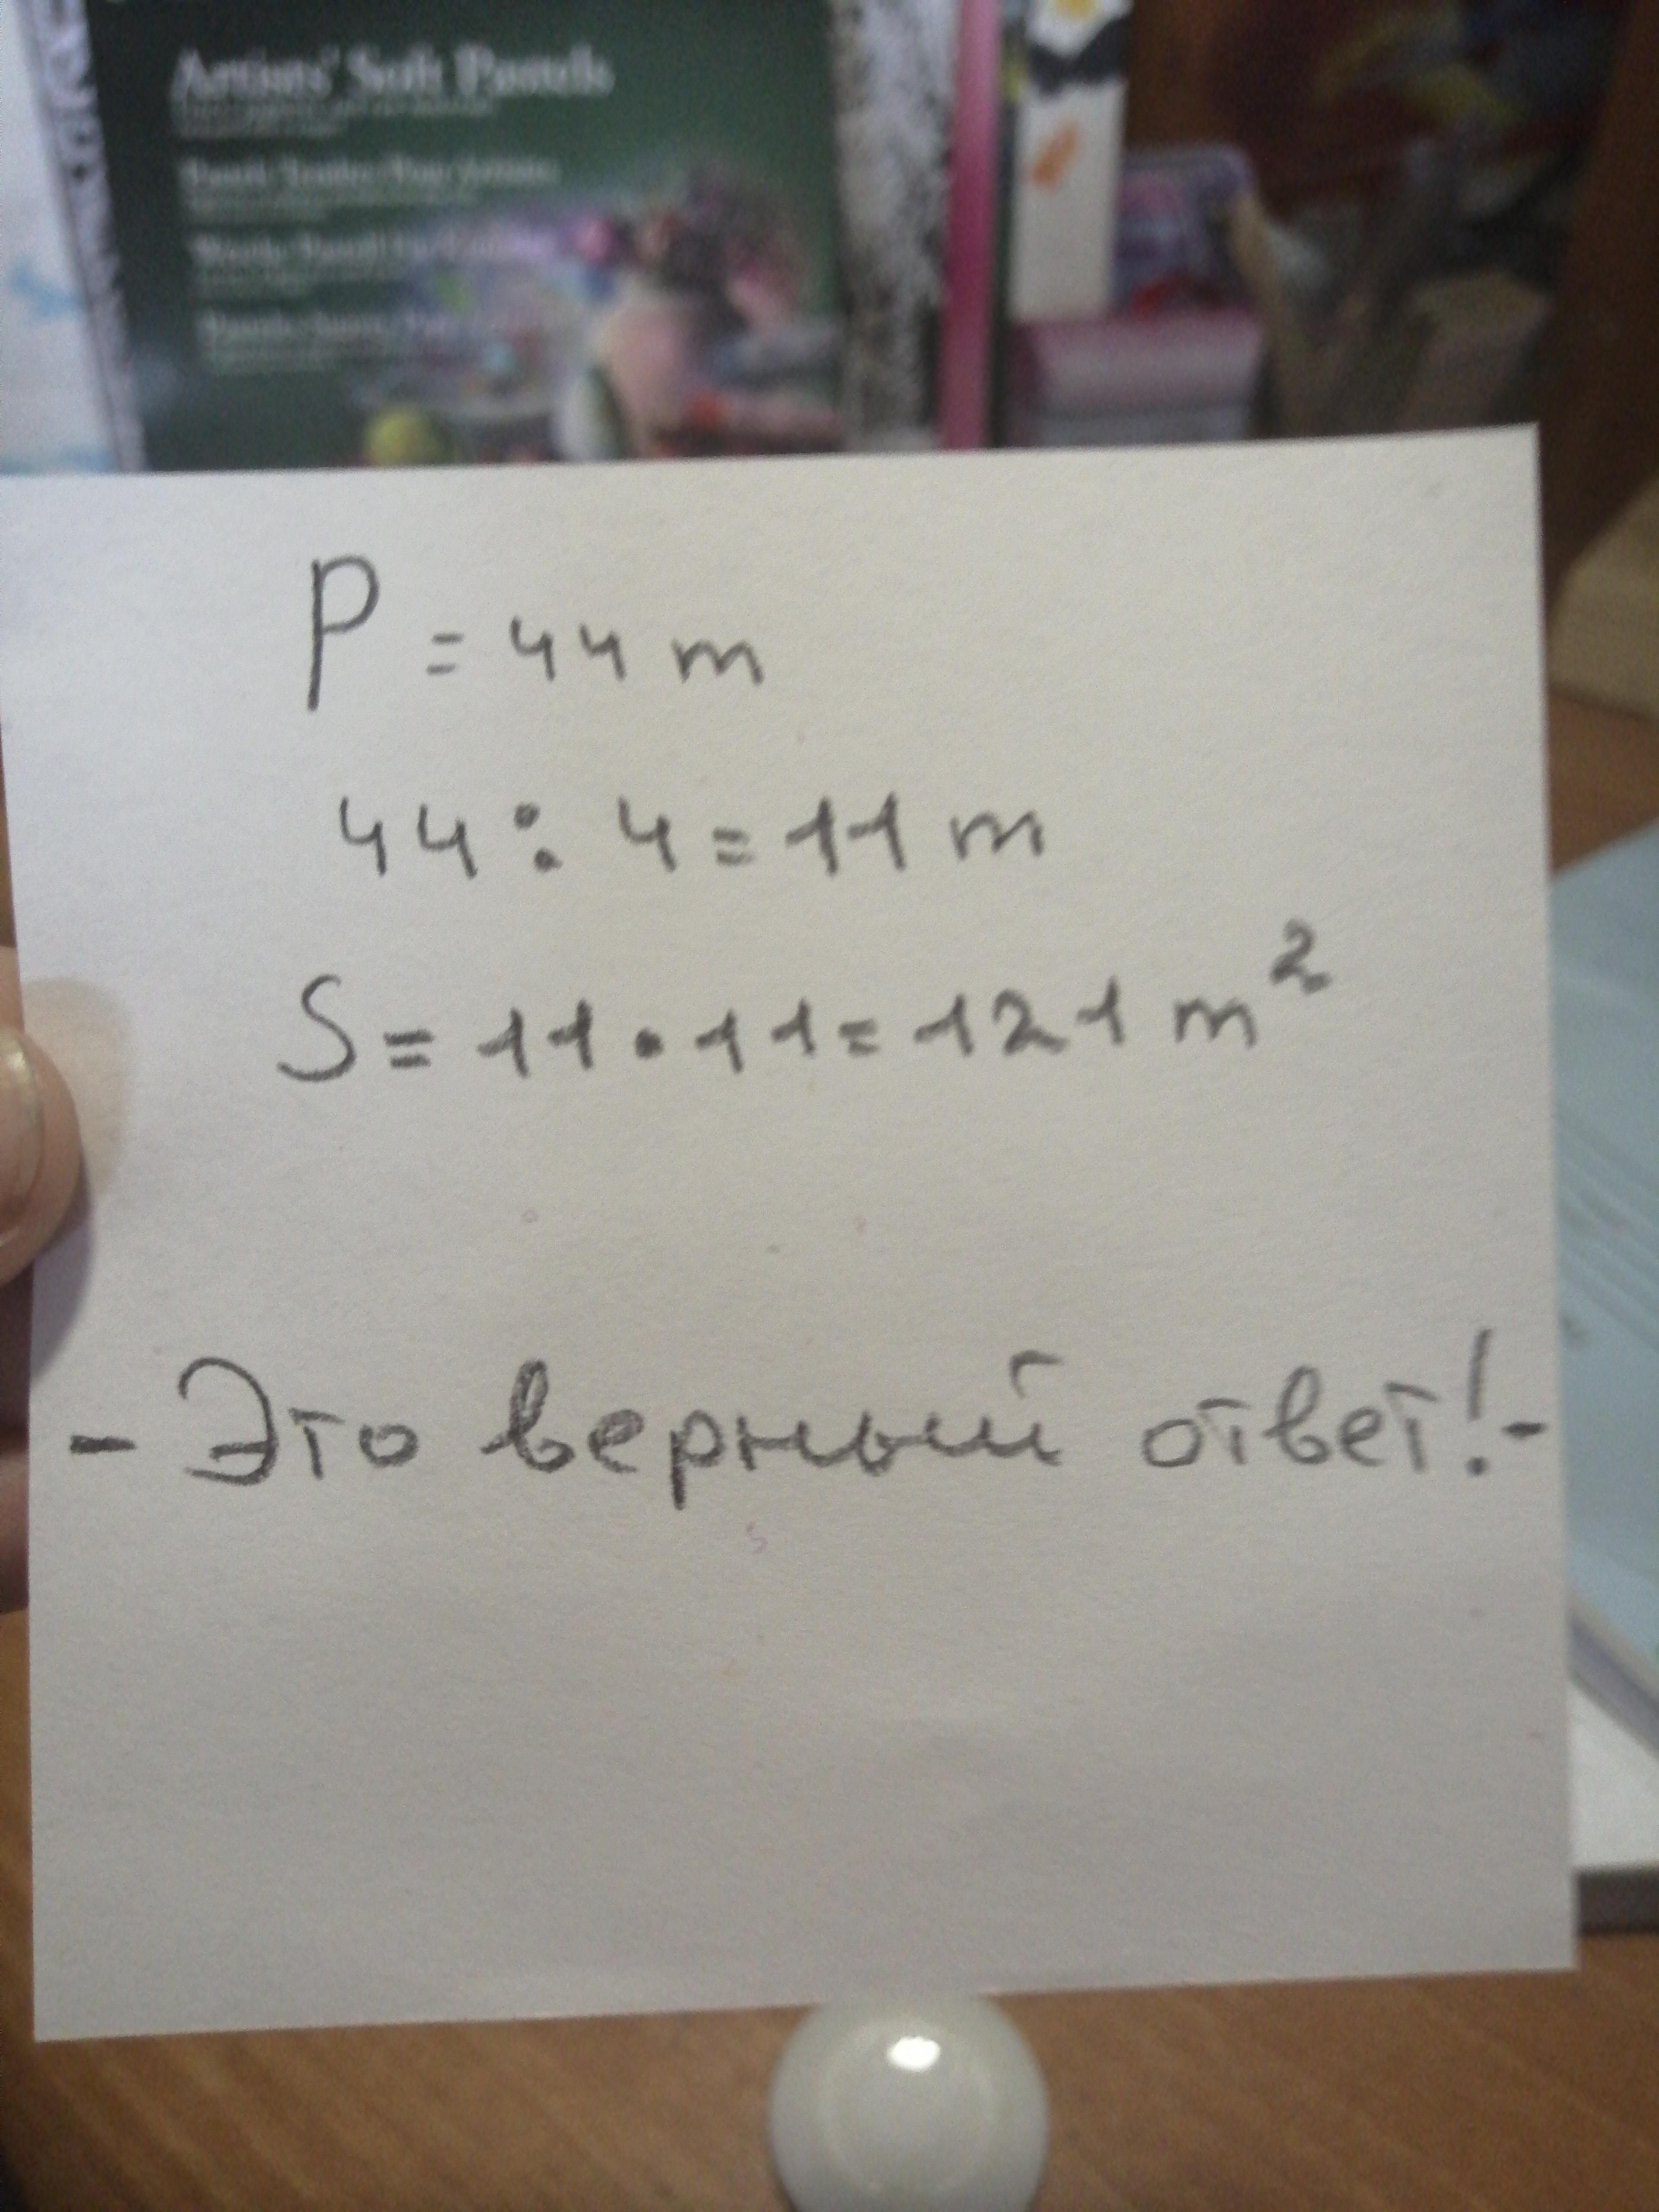 Artists' Soft Pastels
P = 44 m
44 : 4 = 11 m
S = 11 · 11 = 121 m²
- Это верный ответ! -